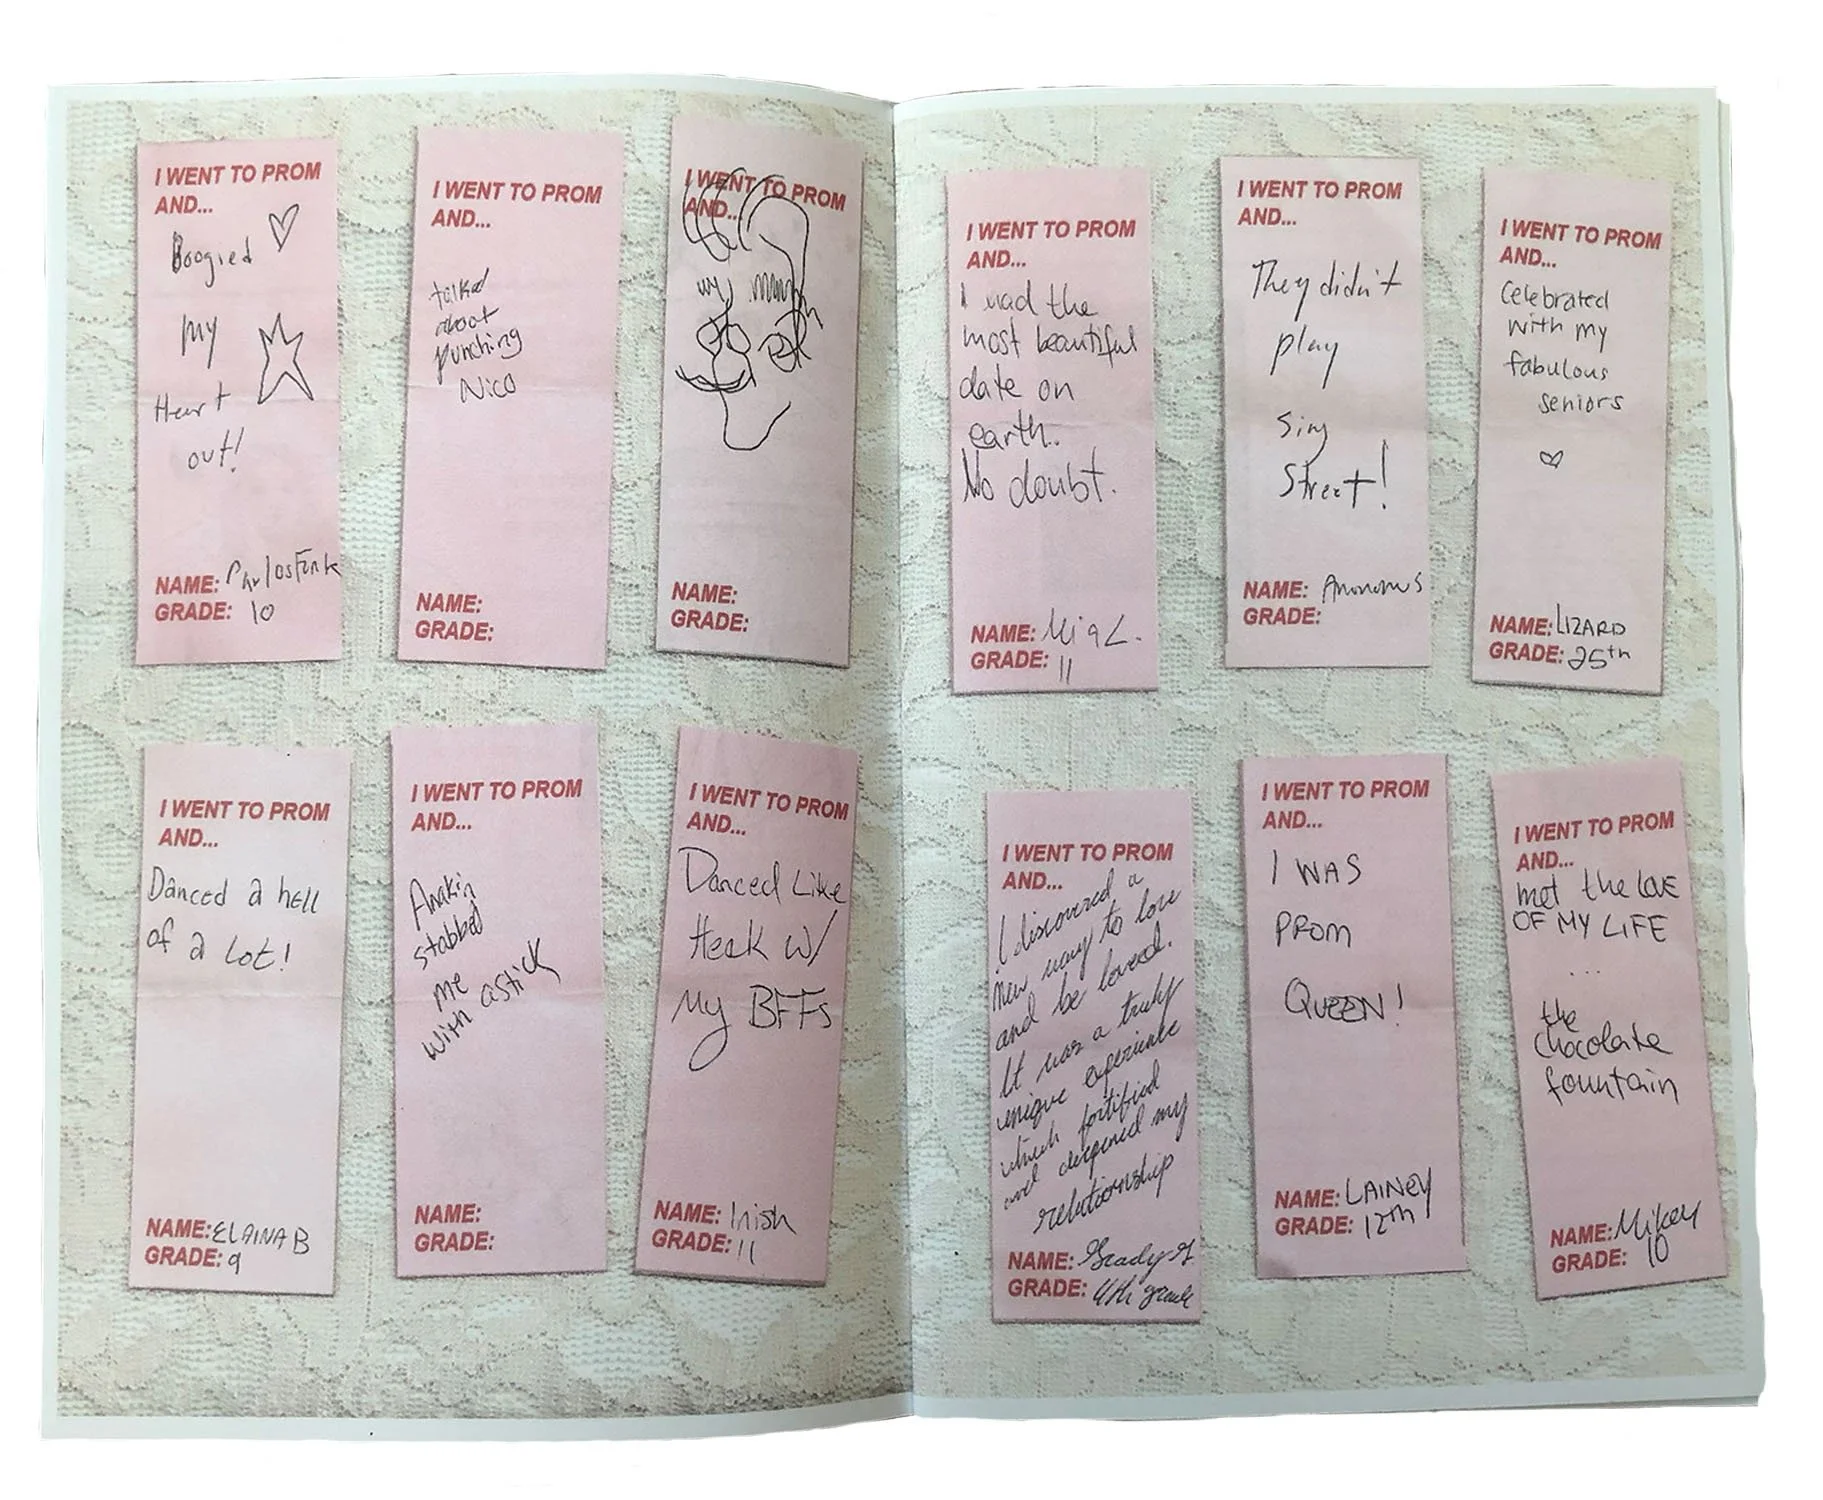 I WENT TO PROM
AND...
Boogied
my
Heart
out!
NAME:
GRADE: 10
I WENT TO PROM
AND...
talked
about
punching
Nico
NAME:
GRADE:
I WENT TO PROM
AND...
NAME:
GRADE:
Danced a hell
I WENT TO PROM
AND...
Danced a hell
of a Lot!
NAME: ELAINA B
GRADE: 9
I WENT TO PROM
AND...
Anakin
stabbed
me
with a stick
NAME:
GRADE:
I WENT TO PROM
AND...
Danced Like
Heck w/
My BFFs
NAME: Irish
GRADE: 11
I WENT TO PROM
AND...
I had the
most beautiful
date on
earth..
No doubt.
NAME: Mia L.
GRADE: 11
I WENT TO PROM
AND...
They didn't
play
Sing
Street!
NAME: Anonomus
GRADE:
I WENT TO PROM
AND...
Celebrated
with my
fabulous
seniors
NAME: LIZARD
GRADE: 25th
I WENT TO PROM
AND...
I discovered a
new way to love
and be loved.
It was a truly
unique experience
which fortified
and deepened my
relationship
NAME: Grady G.
GRADE: 4th grade
I WENT TO PROM
AND...
I WAS
PROM
QUEEN!
NAME: LAINEY
GRADE: 12th
I WENT TO PROM
AND...
met the LOVE
OF MY LIFE
...
the
chocolate
fountain
NAME: Mikey
GRADE: 10